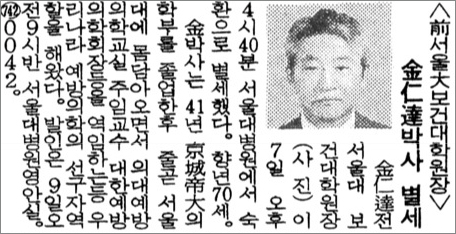 〈前서울大보건대학원장〉
金仁達박사 별세
金仁達전
서울대 보
건대학원장
(사진)이
7일 오후
4시40분 서울대병원에서 숙
환으로 별세했다. 향년70세.
金박사는 41년 京城帝大의
학부를 졸업한후 줄곧 서울
대에 몸담아오면서 의대예방
의학교실 주임교수 대한예방
의학회장등을 역임하는등 우
리나라 예방의학의 선구자역
할을 해왔다. 발인은 9일오
전9시반 서울대병원영안실.
(742)0042.